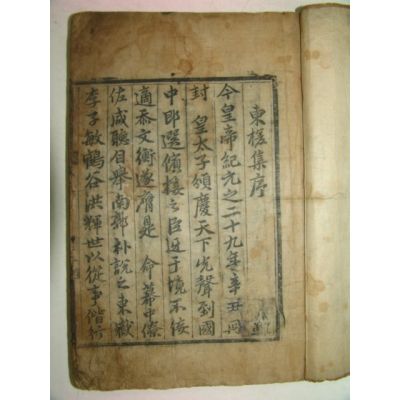 東槎集序
今皇帝紀元之二十九年辛丑冊
封 皇太子頒慶天下先聲到國
中即選儐接之臣迓于境不佞
適忝文衡遂膺是 命幕中僚
佐咸聽自擧南郭朴說之東嶽
李子敏鶴谷洪輝世以從事偕行